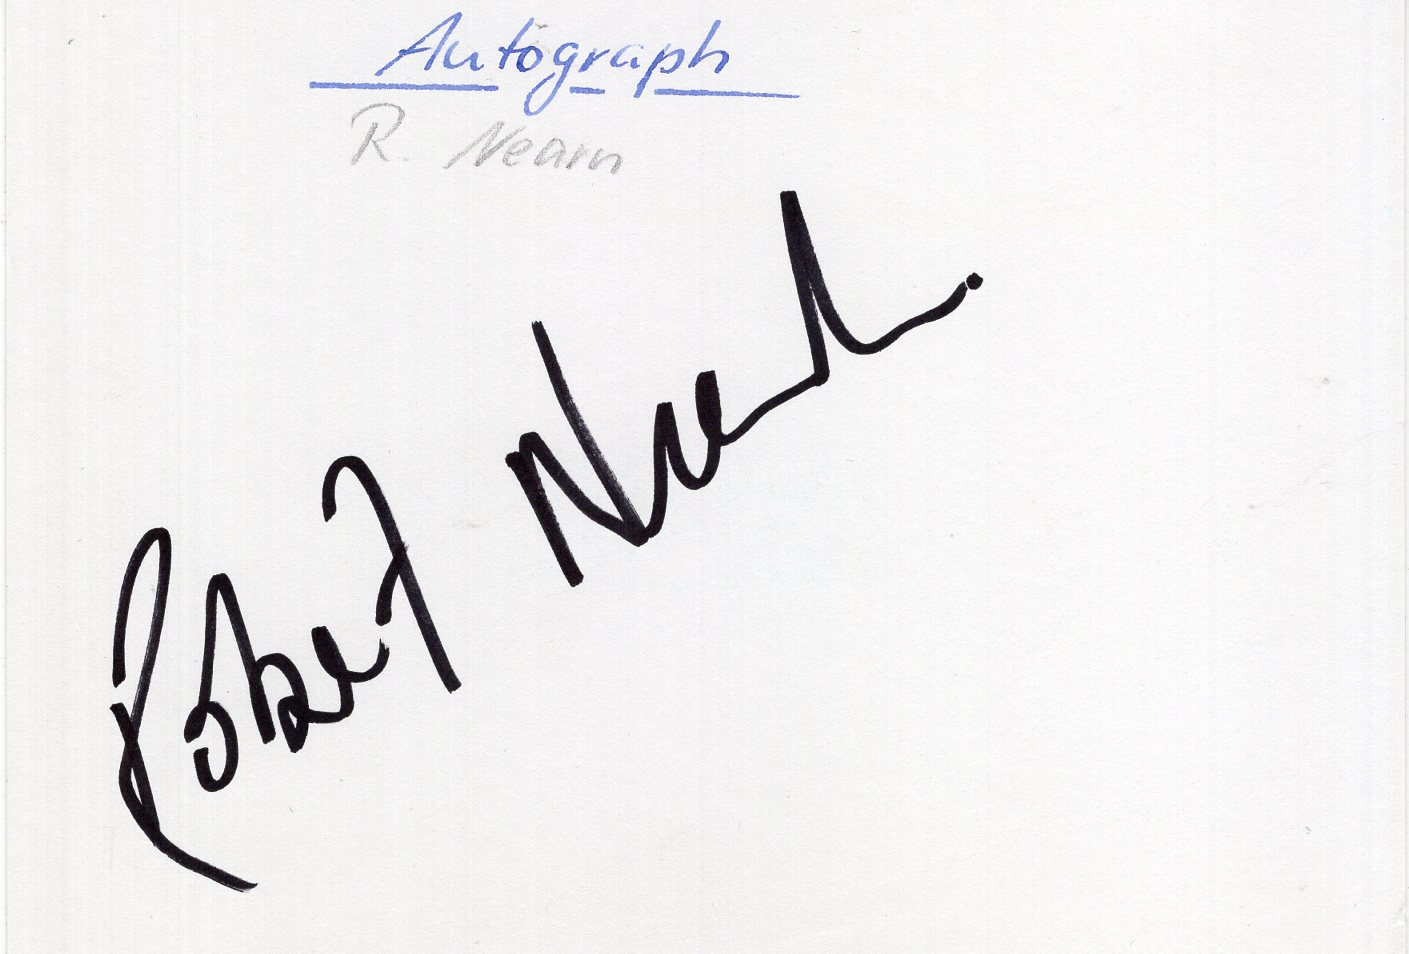 Autograph
R. Nearn
Robert Nearn